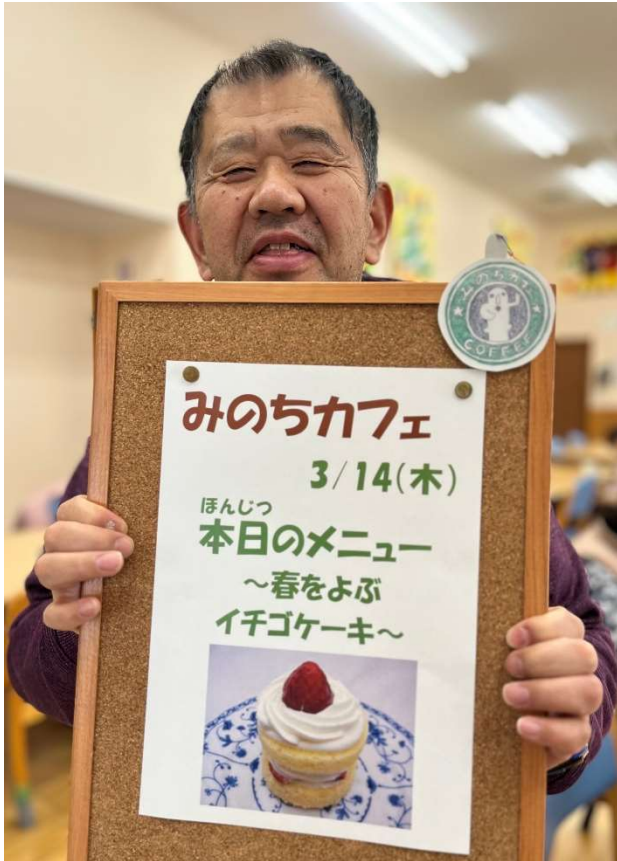 みのちカフェ
COFFEE
みのちカフェ
3/14(木)
ほんじつ
本日のメニュー
～春をよぶ
イチゴケーキ～